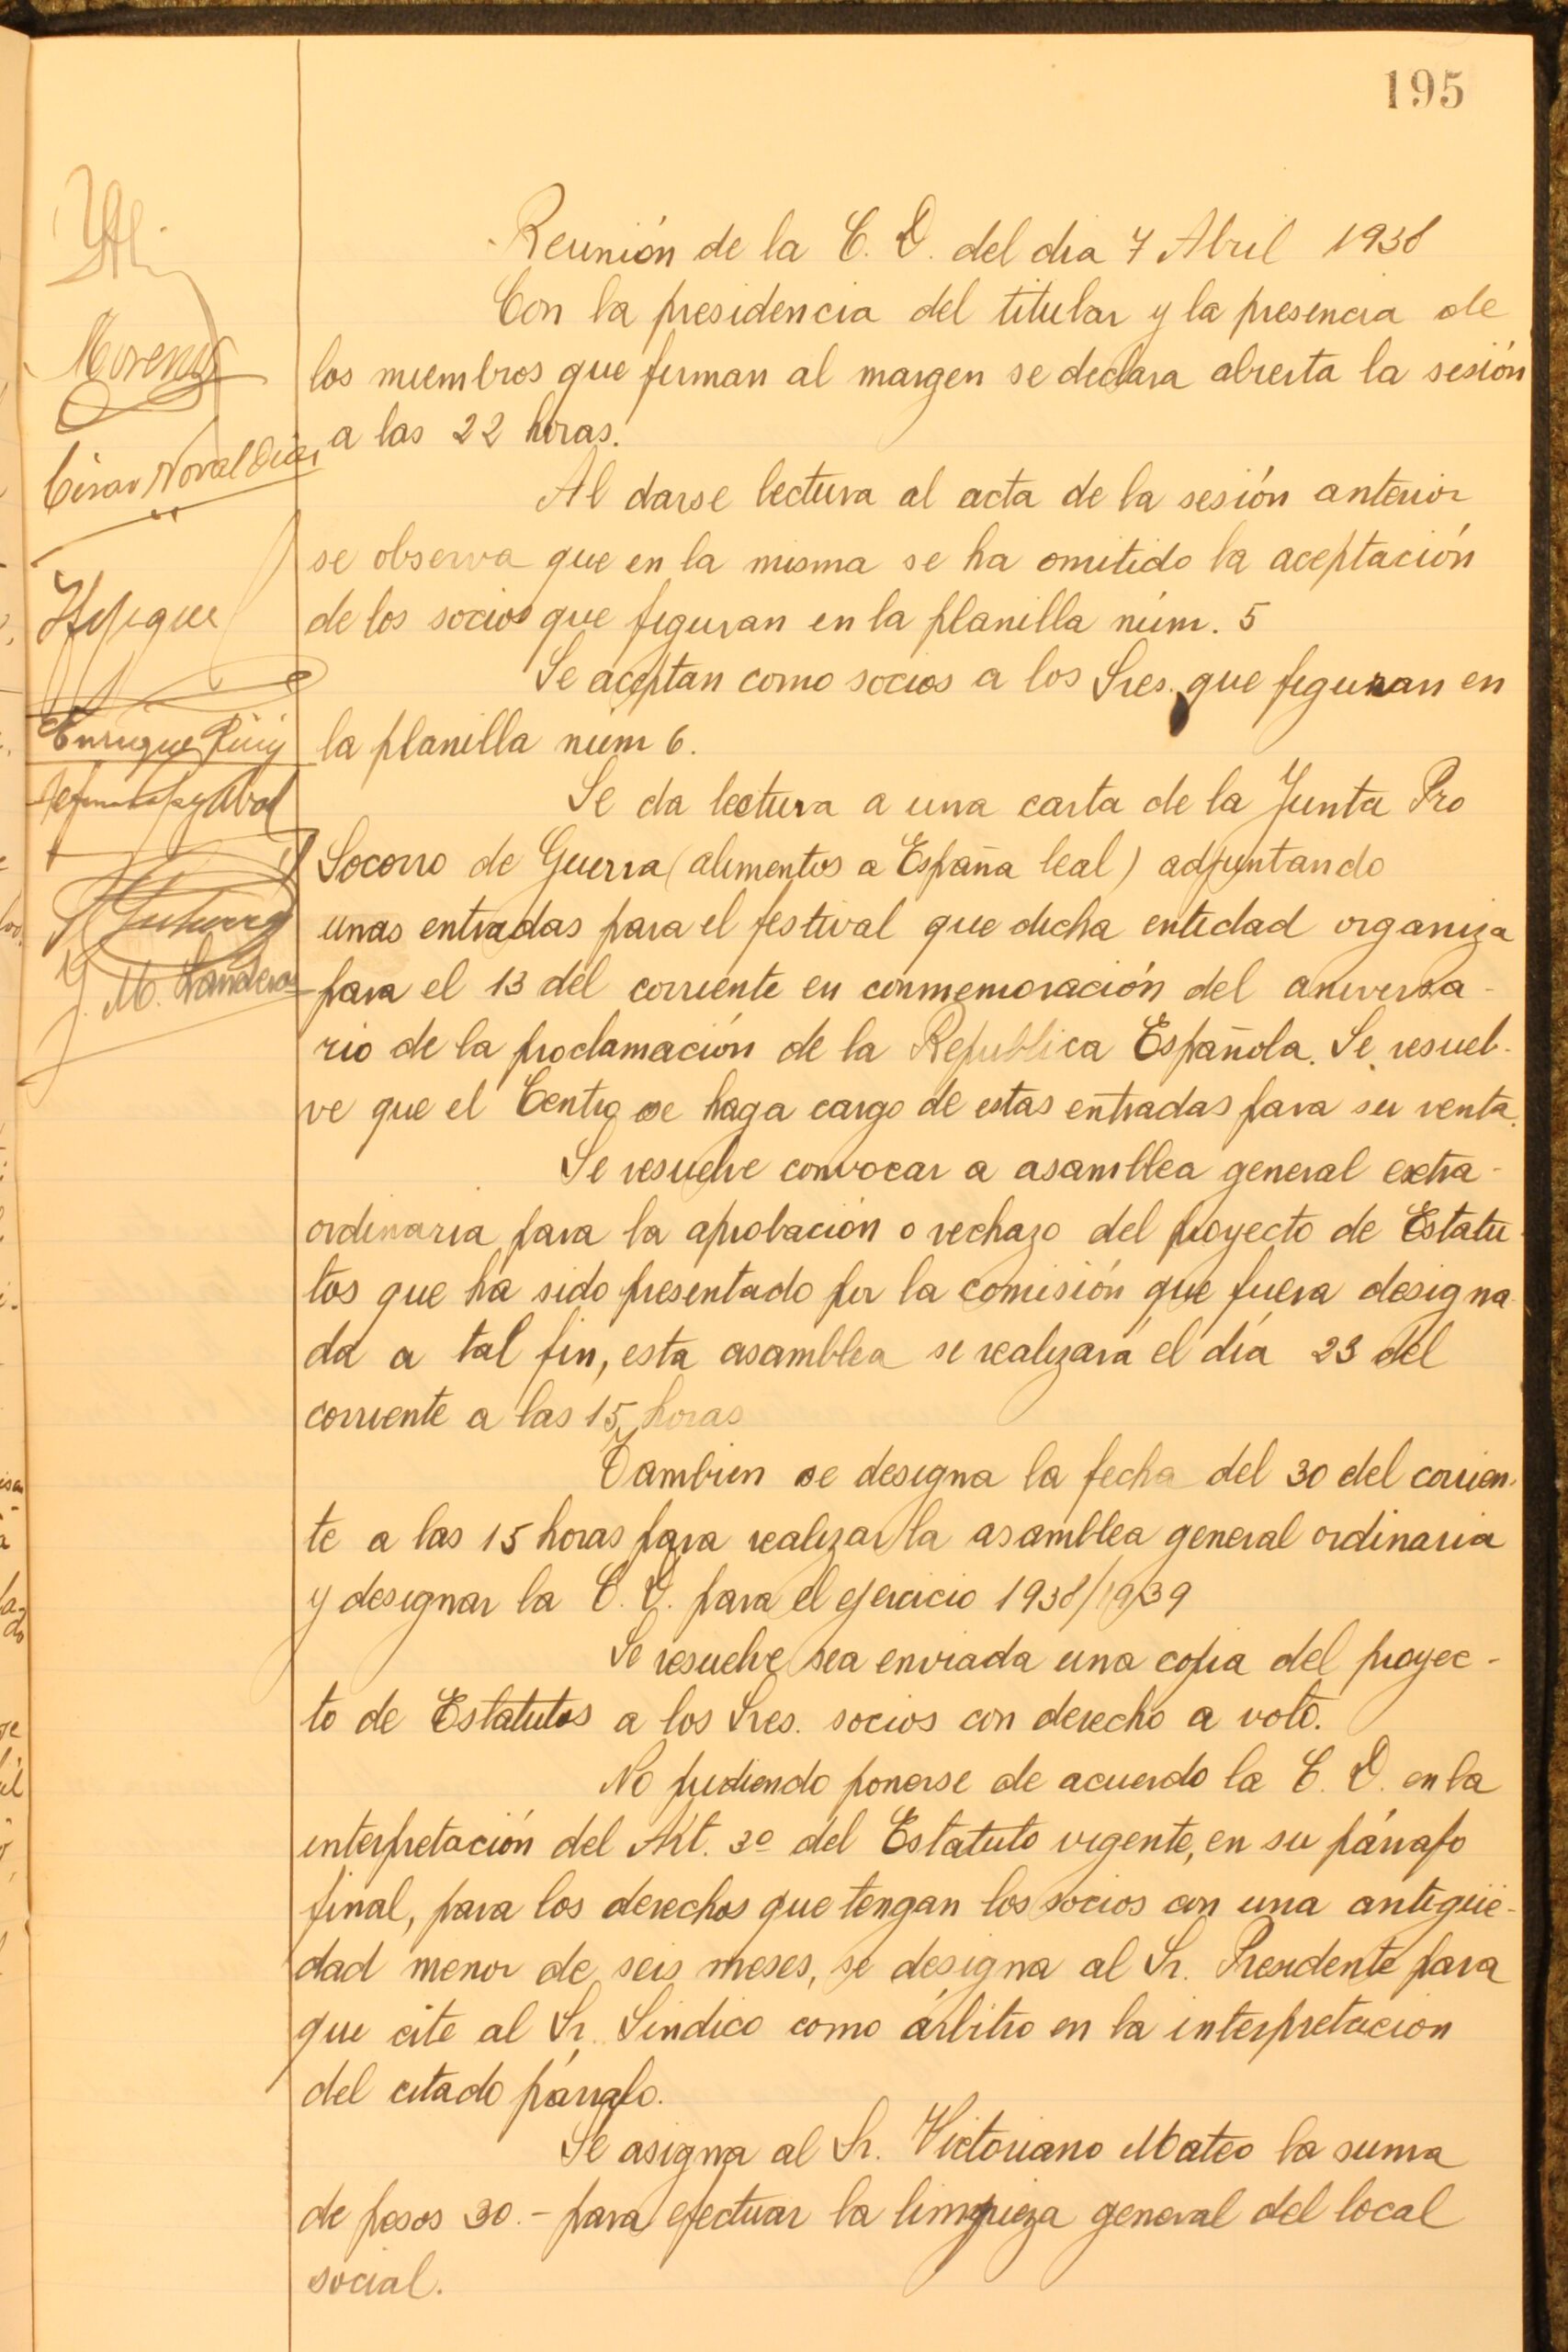 195
Reunión de la C. D. del dia 7 Abril 1938
Con la presidencia del titular y la presencia de
los miembros que firman al margen se declara abierta la sesión
a las 22 horas.
Al darse lectura al acta de la sesión anterior
se observa que en la misma se ha omitido la aceptación
de los socios que figuran en la planilla núm. 5
Se aceptan como socios a los Sres. que figuran en
la planilla núm 6.
Se da lectura a una carta de la Junta Pro
Socorro de Guerra (alimentos a España leal) adjuntando
unas entradas para el festival que dicha entidad organiza
para el 13 del corriente en conmemoración del aniversa-
rio de la proclamación de la Republica Española. Se resuel-
ve que el Centro se haga cargo de estas entradas para su venta.
Se resuelve convocar a asamblea general extra-
ordinaria para la aprobación o rechazo del proyecto de Estatu-
tos que ha sido presentado por la comisión que fuera designa-
da a tal fin, esta asamblea se realizará el día 23 del
corriente a las 15 horas
Tambien se designa la fecha del 30 del corrien-
te a las 15 horas para realizar la asamblea general ordinaria
y designar la C. D. para el ejercicio 1938/1939
Se resuelve sea enviada una copia del proyec-
to de Estatutos a los Sres. socios con derecho a voto.
No pudiendo ponerse de acuerdo la C. D. en la
interpretación del Art. 3º del Estatuto vigente, en su párrafo
final, para los derechos que tengan los socios con una antigüe-
dad menor de seis meses, se designa al Sr. Presidente para
que cite al Sr. Sindico como árbitro en la interpretacion
del citado párrafo.
Se asigna al Sr. Victoriano Mateo la suma
de pesos 30.- para efectuar la limpieza general del local
social.
Moreno
César Noval Diaz
Enrique Puig
M. Landeras